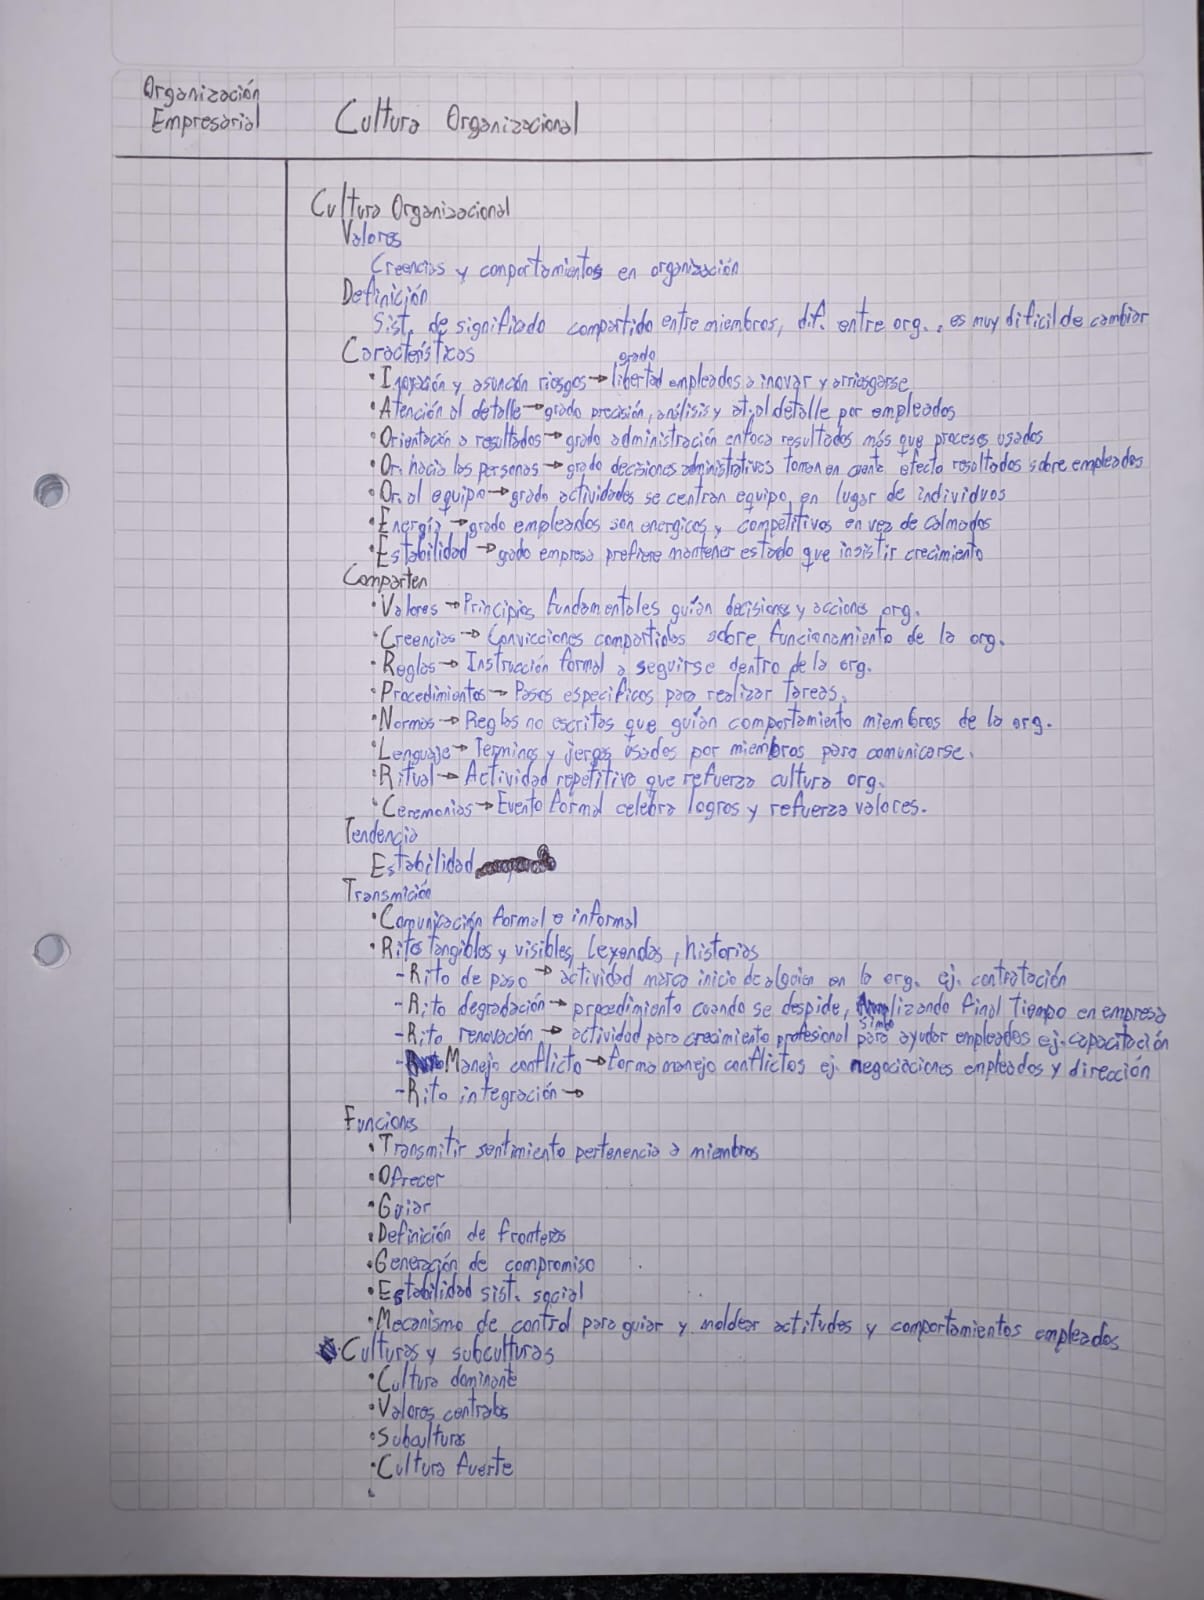 Organización
Empresarial
Cultura Organizacional
Cultura Organizacional
Valores
Creencias y comportamientos en organización
Definición
Sist. de significado compartido entre miembros, dif. entre org., es muy dificil de cambiar
Características
grado
• Inovación y asunción riesgos → libertad empleados a inovar y arriesgarse
• Atención al detalle → grado precisión, análisis y at. al detalle por empleados
• Orientación a resultados → grado administración enfoca resultados más que procesos usados
• Or. hacia las personas → grado decisiones administrativas toman en cuenta efecto resultados sobre empleados
• Or. al equipo → grado actividades se centran equipo, en lugar de individuos
• Energía → grado empleados son energicos y competitivos en vez de calmados
• Estabilidad → grado empresa prefiere mantener estado que insistir crecimiento
Comparten
• Valores → Principios fundamentales guían decisiones y acciones org.
• Creencias → Convicciones compartidas sobre funcionamiento de la org.
• Reglas → Instrucción formal a seguirse dentro de la org.
• Procedimientos → Pasos especificos para realizar tareas.
• Normas → Reglas no escritas que guían comportamiento miembros de la org.
• Lenguaje → Terminos y jergas usados por miembros para comunicarse.
• Ritual → Actividad repetitiva que refuerza cultura org.
• Ceremonias → Evento formal celebra logros y refuerza valores.
Tendencia
Estabilidad
Transmición
• Comunicación formal e informal
• Ritos tangibles y visibles, leyendas, historias
- Rito de paso → actividad marca inicio de alguien en la org. ej. contratación
- Rito degradación → procedimiento cuando se despide, simbolizando final tiempo en empresa
- Rito renovación → actividad para crecimiento profesional para ayudar empleados ej. capacitación
- Manejo conflicto → forma manejo conflictos ej. negociaciones empleados y dirección
- Rito integración →
Funciones
• Transmitir sentimiento pertenencia a miembros
• Ofrecer
• Guiar
• Definición de fronteras
• Generación de compromiso
• Estabilidad sist. social
• Mecanismo de control para guiar y moldear actitudes y comportamientos empleados
Culturas y subculturas
• Cultura dominante
• Valores centrales
• Subculturas
• Cultura fuerte